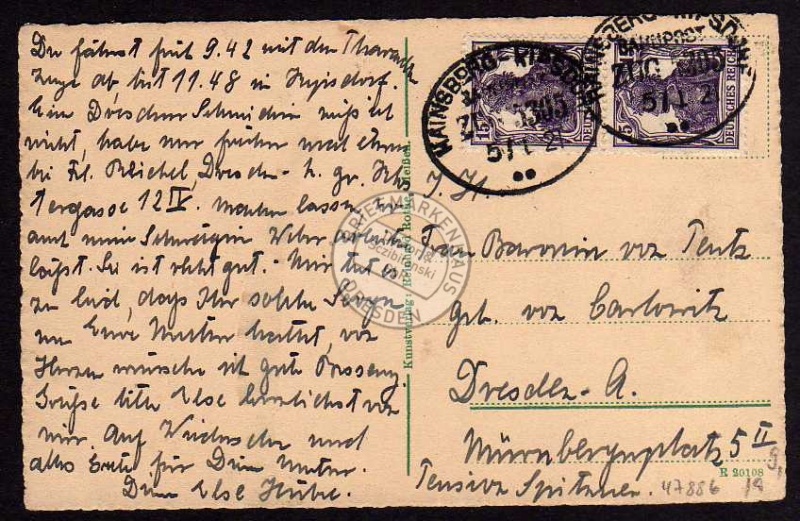 Du fährst früh 9.42 mit dem Tharandt
Zuge ab, bist 11.48 in Kipsdorf.
Eine Dresdner Schneiderin weiß ich
nicht, habe nur früher mal etwas
bei Frl. Reichel, Dresden - A. gr. Klos
tergasse 12 IV. machen lassen, wo
auch meine Schwägerin Weber arbeiten
läßt. Sie ist recht gut. - Mir tut es
zu leid, dass Ihr solche Sorgen
um Eure Mutter hattet, von
Herzen wünsche ich gute Besserung.
Grüße bitte Else herzlichst von
mir. Auf Wiedersehen und
alles Gute für Deine Mutter.
Deine Else Hübe.
Kunstverlag: Reinhard Rothe, Meißen.
HAINSBERG - KIPSDORF
BAHNPOST
ZUG 3305
5/1 21
HAINSBERG - KIPSDORF
BAHNPOST
ZUG 3305
5/1 21
15
DEUTSCHES REICH
15
DEUTSCHES REICH
I. H.
Frau Baronin von
geb. von Carlowitz
Dresden - A.
Nürnbergerplatz 5 II
Pension
R 20108
47886
BRIEFMARKENHAUS
DRESDEN